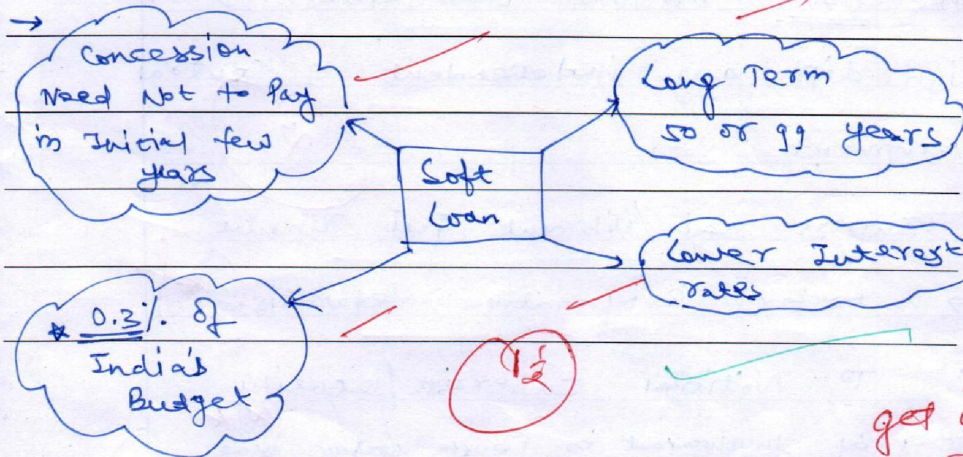 →
Concession
Need Not to Pay
in Initial few
years
Long Term
50 or 99 years
Soft
Loan
Lower Interest
rates
* 0.3% of
India's
Budget
1½
get